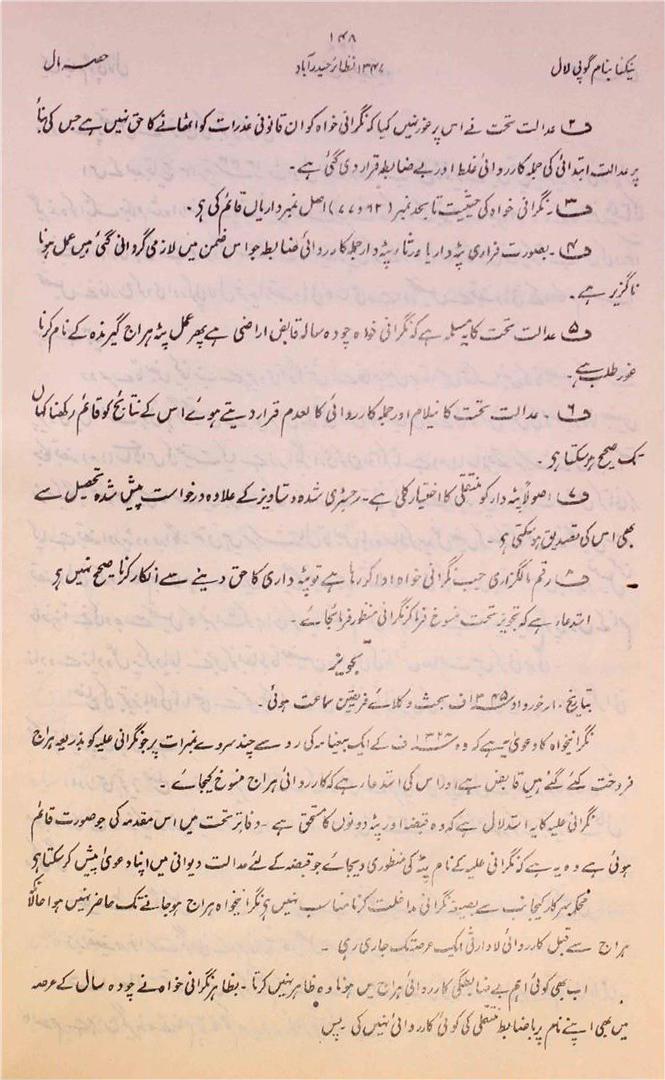 ۱۴۸
نیکنا بنام گوپی لال
۱۳۴۷ نظائر حیدرآباد
حصہ مال
ف ۲ عدالت تحت نے اس پر غور نہیں کیا کہ نگرانی خواہ کو ان قانونی عذرات کو اٹھانے کا حق نہیں ہے جس کی بنأ
پر عدالت ابتدائی کی جملہ کارروائی غلط اور بے ضابطہ قرار دی گئی ہے۔
ف ۳۔ نگرانی خواہ کی حیثیت تا بحد نمبر (۶۲ و ۷۷) اصل نمبرداریاں قائم کی ہو۔
ف ۴۔ بصورت فراری پٹہ دار یا ورثاء پٹہ دار جملہ کارروائی ضابطہ جو اس ضمن میں لازمی گردانی گئی ہیں عمل ہونا
ناگزیر ہے۔
ف ۵ عدالت تحت کا یہ مسلمہ ہے کہ نگرانی خواہ چودہ سالہ قابض اراضی ہے پھر عمل پٹہ ہراج گیرندہ کے نام کرنا
غور طلب ہے۔
ف ۶۔ عدالت تحت کا نیلام اور جملہ کارروائی کالعدم قرار دیتے ہوئے اس کے نتائج کو قائم رکھنا کہاں
تک صحیح ہو سکتا ہو۔
ف ۷ اصولاً پٹہ دار کو منتقلی کا اختیار کلی ہے۔ رجسٹری شدہ دستاویز کے علاوہ درخواست پیش شدہ تحصیل سے
بھی اس کی تصدیق ہو سکتی ہو۔
ف ۸ رقم مالگزاری جب نگرانی خواہ ادا کر رہا ہے تو پٹہ داری کا حق دینے سے انکار کرنا صحیح نہیں ہو
استدعاء ہے کہ تجویز تحت منسوخ فرما کر نگرانی منظور فرمائی جائے۔
تجویز
بتاریخ ۱۰ خورداد ۱۳۴۵ ف بحث وکلائے فریقین سماعت ہوئی۔
نگرانیخواہ کا دعویٰ یہ ہے کہ وہ ۱۳۲۶ ف کے ایک بیعنامہ کی رو سے چند سروے نمبرات پر جو نگرانی علیہ کو بذریعہ ہراج
فروخت کئے گئے ہیں قابض ہے اور اس کی استدعا ہے کہ کارروائی ہراج منسوخ کیجائے۔
نگرانی علیہ کا یہ استدلال ہے کہ وہ قبضہ اور پٹہ دونوں کا مستحق ہے۔ دفاتر تحت میں اس مقدمہ کی جو صورت قائم
ہوئی ہے وہ یہ ہے کہ نگرانی علیہ کے نام پٹہ کی منظوری دیجائے جو قبضہ کے لئے عدالت دیوانی میں اپنا دعویٰ پیش کر سکتا ہو
محکمہ سرکار کیجانب سے بصیغہ نگرانی مداخلت کرنا مناسب نہیں ہو نگرانیخواہ ہراج ہو جانے تک حاضر نہیں ہوا حالانکہ
ہراج سے قبل کارروائی لاوارثی ایک عرصہ تک جاری رہی۔
اب بھی کوئی اہم بے ضابطگی کارروائی ہراج میں ہونا وہ ظاہر نہیں کرتا۔ بظاہر نگرانی خواہ نے چودہ سال کے عرصہ
میں بھی اپنے نام پر باضابطہ منتقلی کی کوئی کارروائی نہیں کی۔ پس